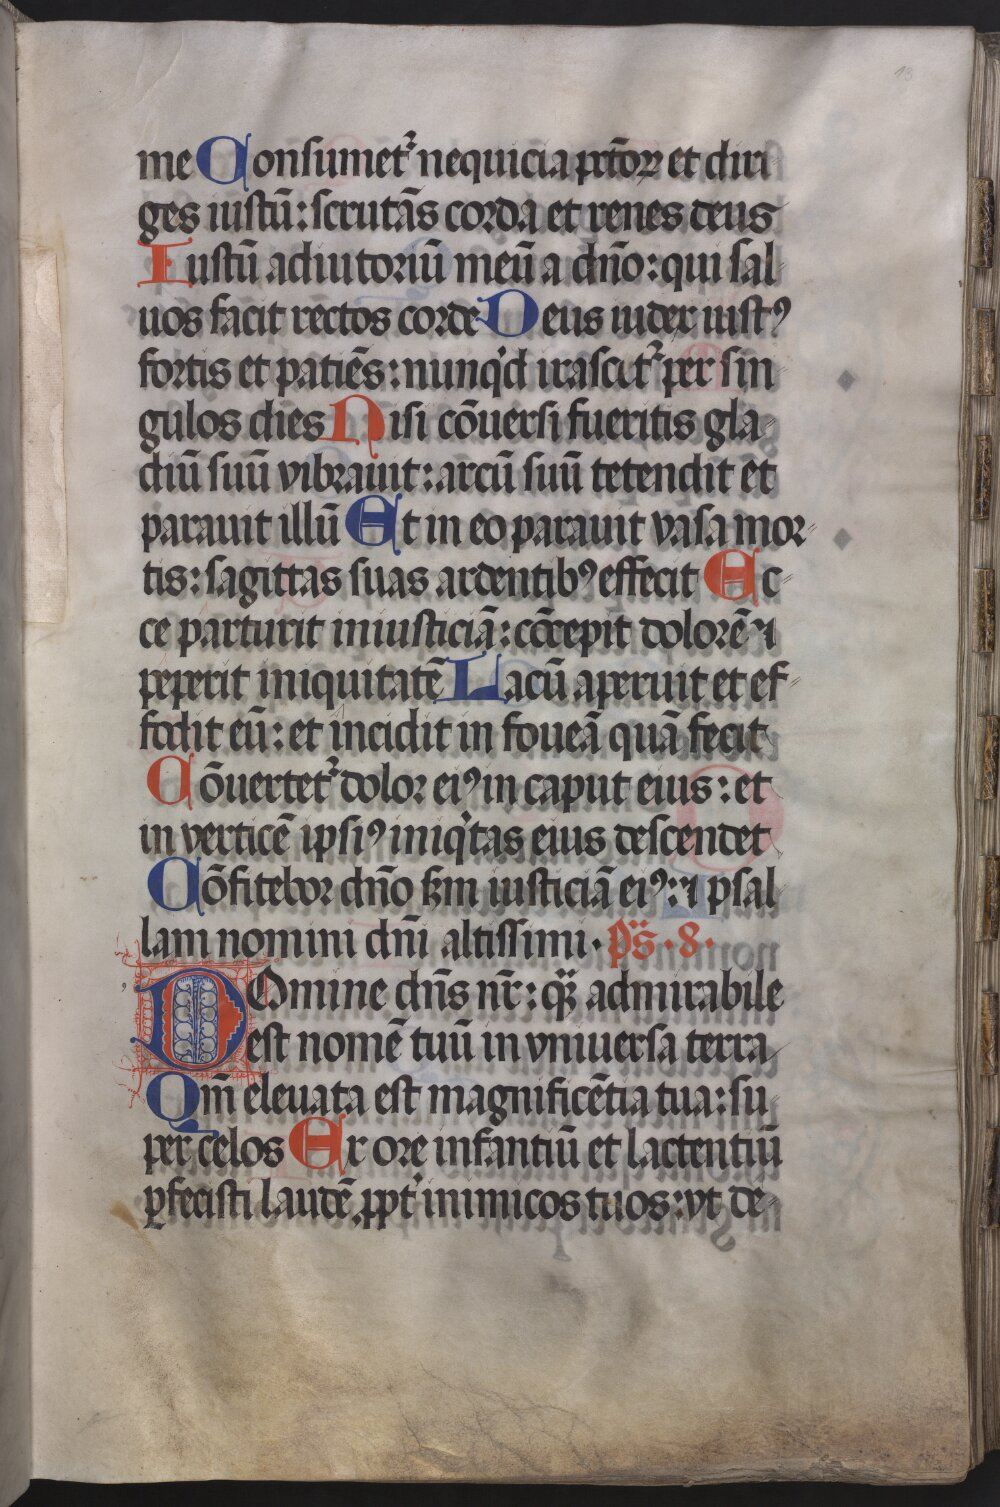 13
me Consumet᷑ nequicia pctō℞ et diri
ges iustū: scrutās corda et renes deus
Iustū adiutoriū meū a dn̄o: qui sal
uos facit rectos corde Deus iudex iustꝰ
fortis et patiēs: nunqͥd irascit᷑ per sin
gulos dies Nisi cōuersi fueritis gla
diū suū vibrauit: arcū suū tetendit et
parauit illū Et in eo parauit vasa mor
tis: sagittas suas ardentibꝰ effecit Ec
ce parturit iniusticiā: cōcepit dolorē ⁊
peperit iniquitatē Lacū aperuit et ef
fodit eū: et incidit in foueā quā fecit
Cōuertet᷑ dolor eiꝰ in caput eius: et
in verticē ipsiꝰ iniqͥtas eius descendet
Cōfitebor dn̄o scd̄m iusticiā eiꝰ: ⁊ psal
lam nomini dn̄i altissimi. ps̄. 8.
Domine dn̄s nr̄: qᷓ admirabile
est nomē tuū in vniuersa terra
Qm̄ eleuata est magnificētia tua: su
per celos Ex ore infantiū et lactentiū
ꝑfecisti laudē ꝓpt᷑ inimicos tuos: vt de